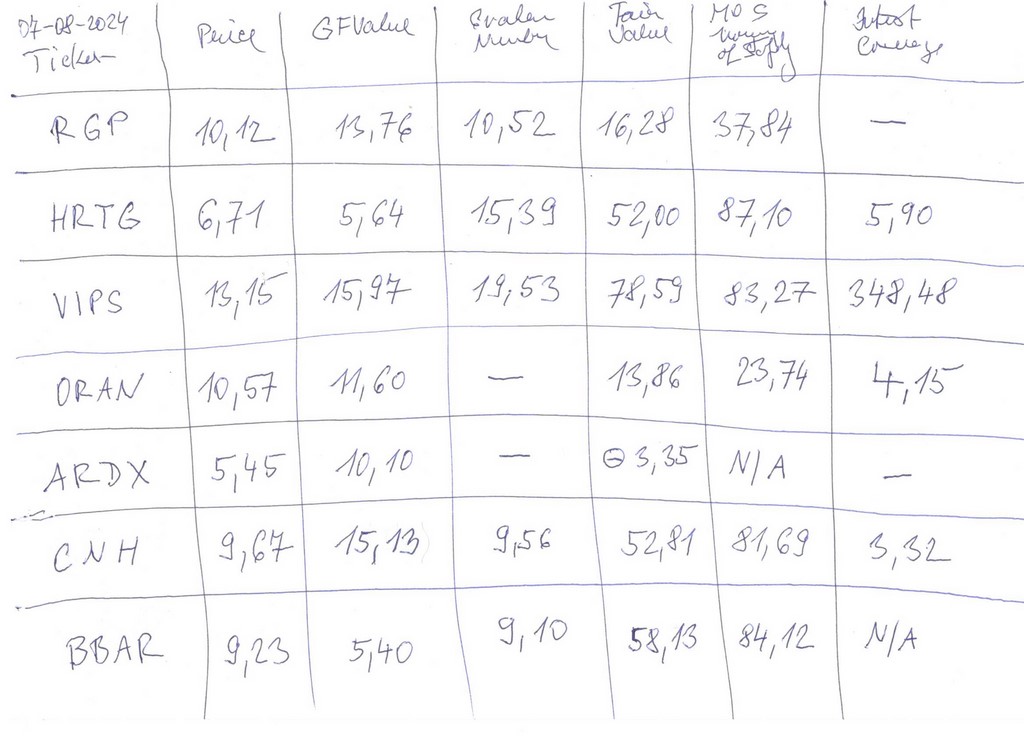 07-08-2024 Ticker Price GFValue Fair Value MOS of Interest Coverage
RGP 10,12 13,76 10,52 16,28 37,84 —
HRTG 6,71 5,64 15,39 52,00 87,10 5,90
VIPS 13,15 15,97 19,53 78,59 83,27 348,48
ORAN 10,57 11,60 — 13,86 23,74 4,15
ARDX 5,45 10,10 — ⊖ 3,35 N/A —
CNH 9,67 15,13 9,56 52,81 81,69 3,32
BBAR 9,23 5,40 9,10 58,13 84,12 N/A